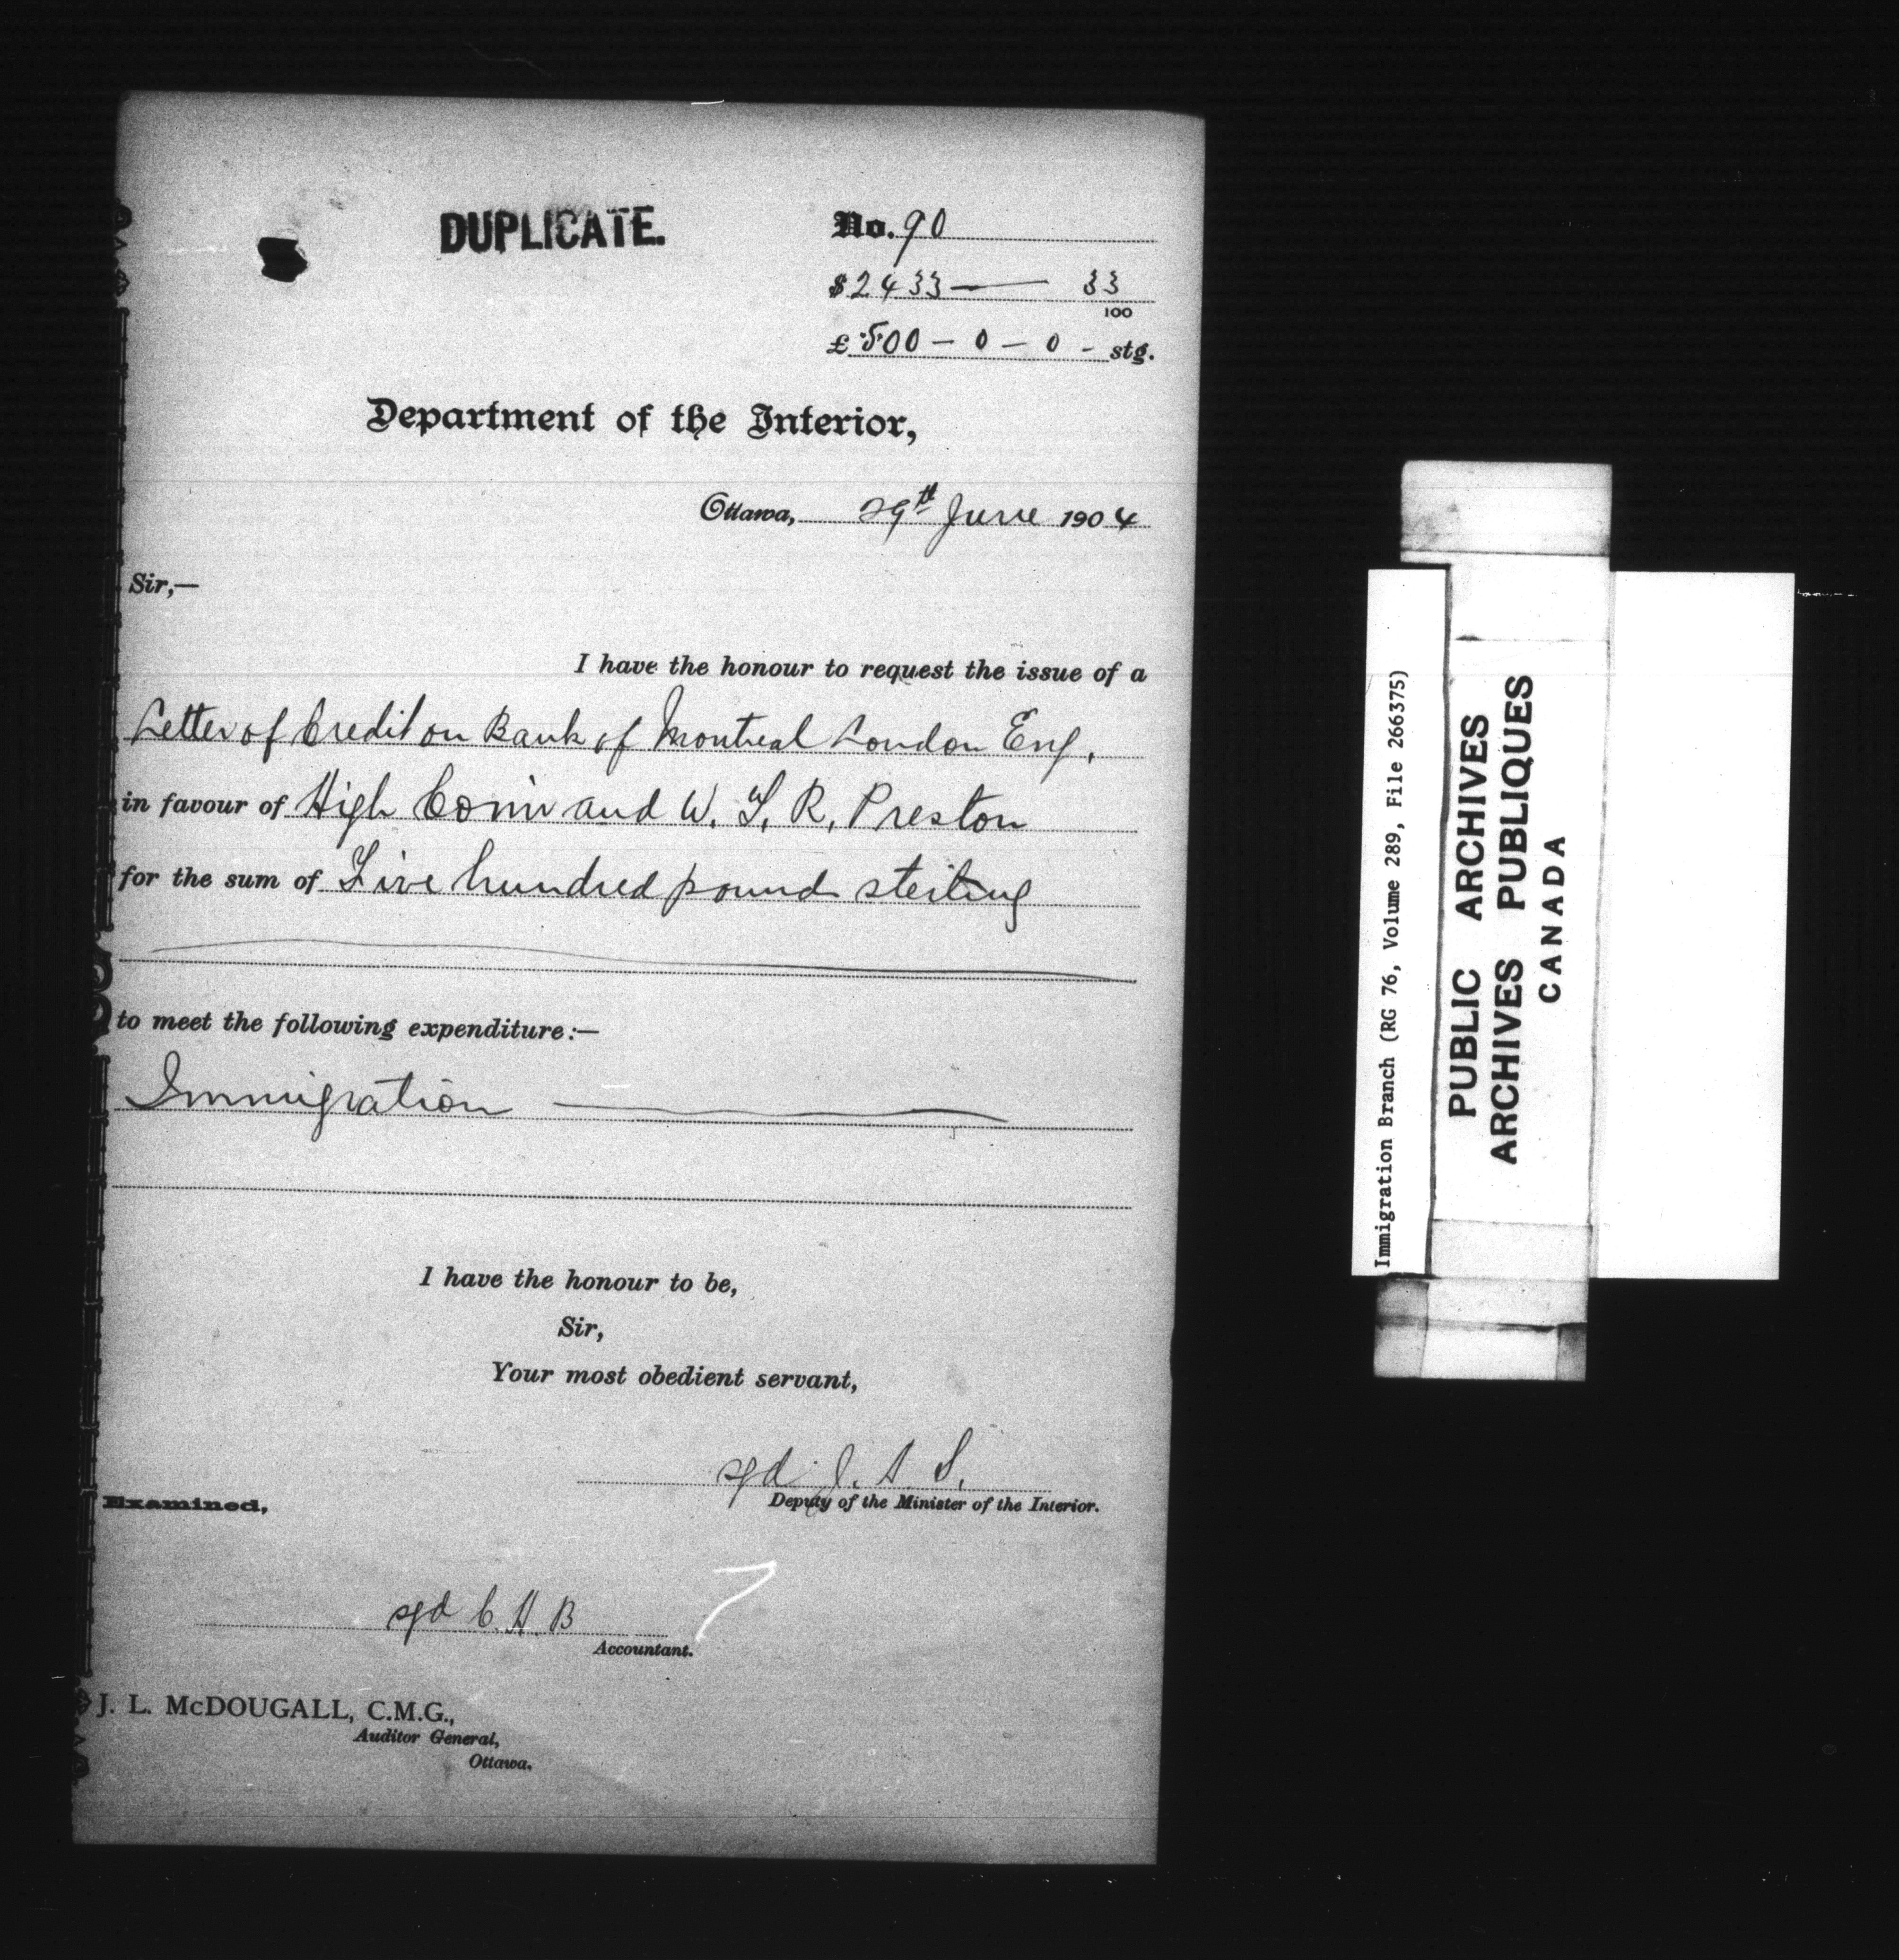 DUPLICATE.
No. 90
$2433 — 33
100
£ 500 - 0 - 0 - stg.
Department of the Interior,
Ottawa, 29th June 1904
Sir,—
I have the honour to request the issue of a
Letter of Credit on Bank of Montreal London Eng.
in favour of High Comr and W. T. R. Preston
for the sum of Five hundred pound sterling
to meet the following expenditure:—
Immigration
I have the honour to be,
Sir,
Your most obedient servant,
sgd J. A. S.
Deputy of the Minister of the Interior.
Examined,
sgd C. H. B
Accountant.
J. L. McDOUGALL, C.M.G.,
Auditor General,
Ottawa.
Immigration Branch (RG 76, Volume 289, File 266375)
PUBLIC ARCHIVES
ARCHIVES PUBLIQUES
CANADA